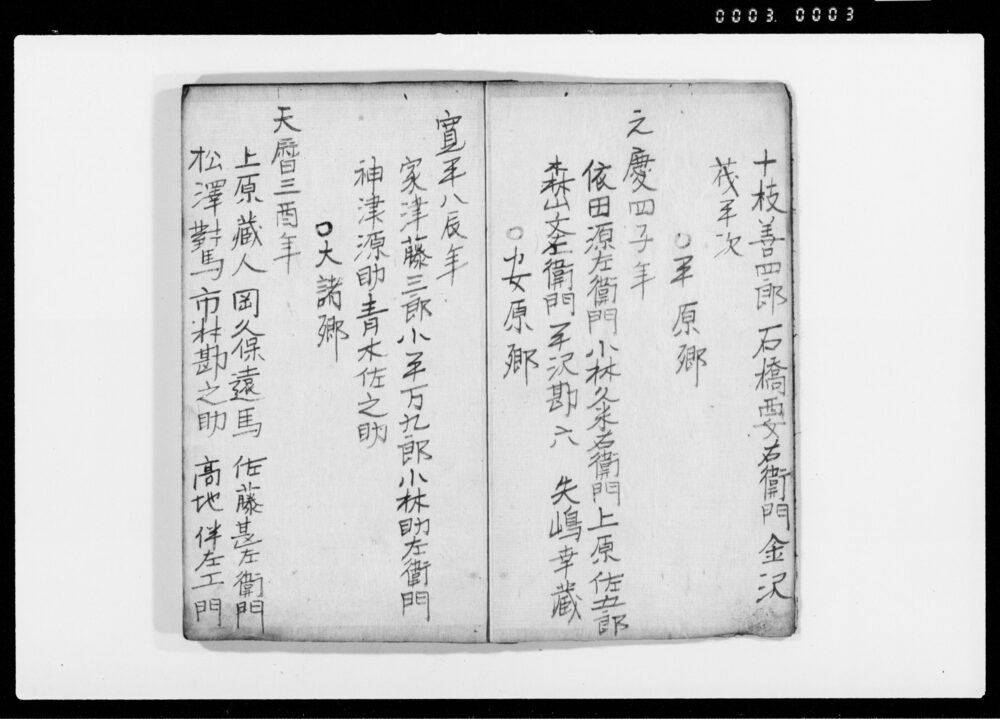 0003 0003
十枝善四郎 石橋要右衛門 金沢
茂平次
○平原郷
元慶四子年
依田源左衛門 小林久米右衛門 上原佐五郎
森山文左衛門 平沢勘六 矢嶋幸蔵
○安原郷
寛平八辰年
家津藤三郎 小平万九郎 小林助左衛門
神津源助 青木佐之助
○大諸郷
天暦三酉年
上原蔵人 岡久保遠馬 佐藤甚左衛門
松澤對馬 市林勘之助 高地伴左工門